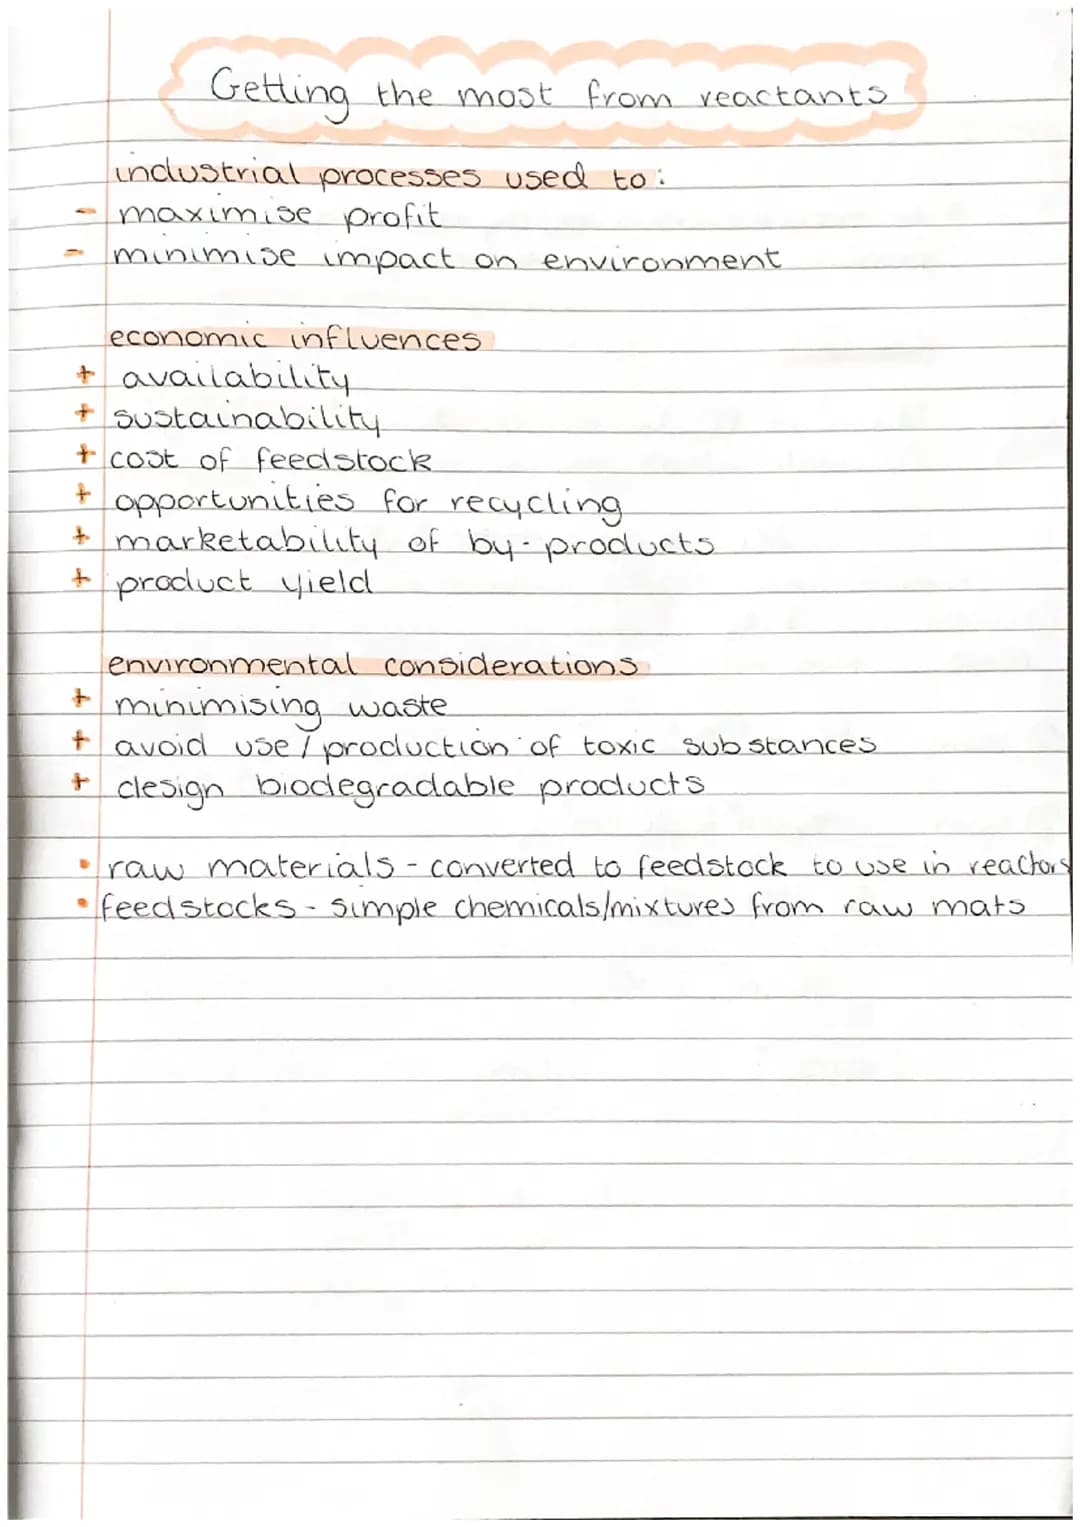 Getting the most from reactants
industrial processes used to:
- maximise profit
- minimise impact on environment
economic influences
+ availability
+ sustainability
+ cost of feedstock
+ opportunities for recycling
+ marketability of by-products
+ product yield
environmental considerations
+ minimising waste
+ avoid use / production of toxic substances
+ design biodegradable products
• raw materials - converted to feedstock to use in reactors
• feedstocks - simple chemicals/mixtures from raw mats